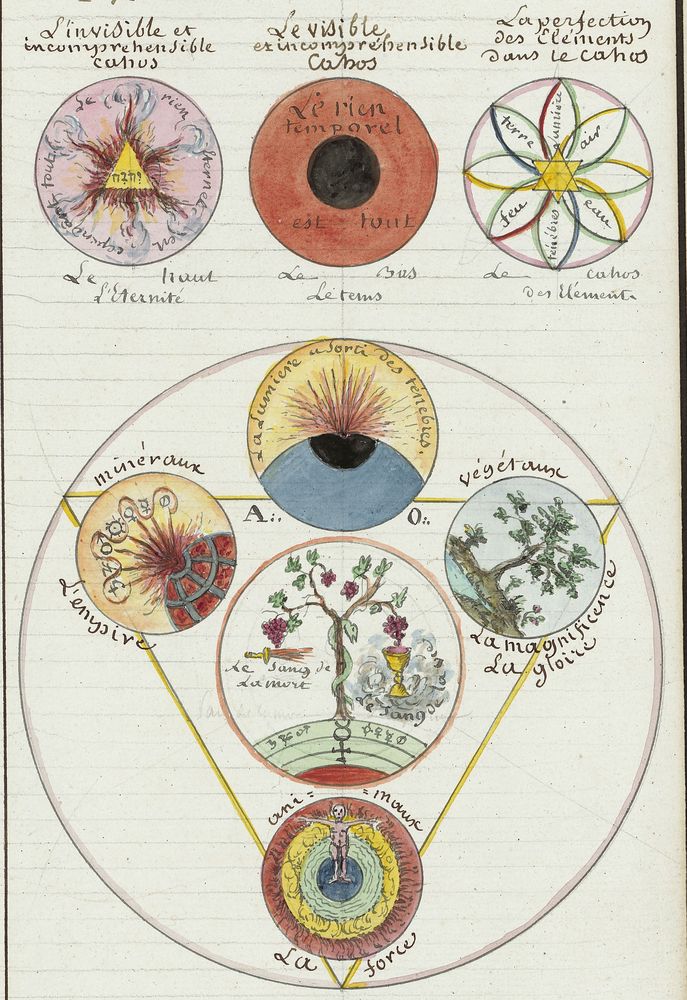 L'invisible et
incomprehensible
cahos
Le visible
et incomprehensible
Cahos
La perfection
des Eléments
dans le cahos
Le rien eternel en
tout
יהוה
Le rien
temporel
est tout
terre
Lumiere
air
feu
ténébres
eau
Le haut
L'Eternité
Le Bas
Le tems
Le cahos
des Element.
La Lumiere a Sorti des ténébres.
minéraux
végétaux
A:.
O:.
L'empire
La magnificence
La gloire
Le Sang de
La mort
Le Sang de la
ani= =maux
La force